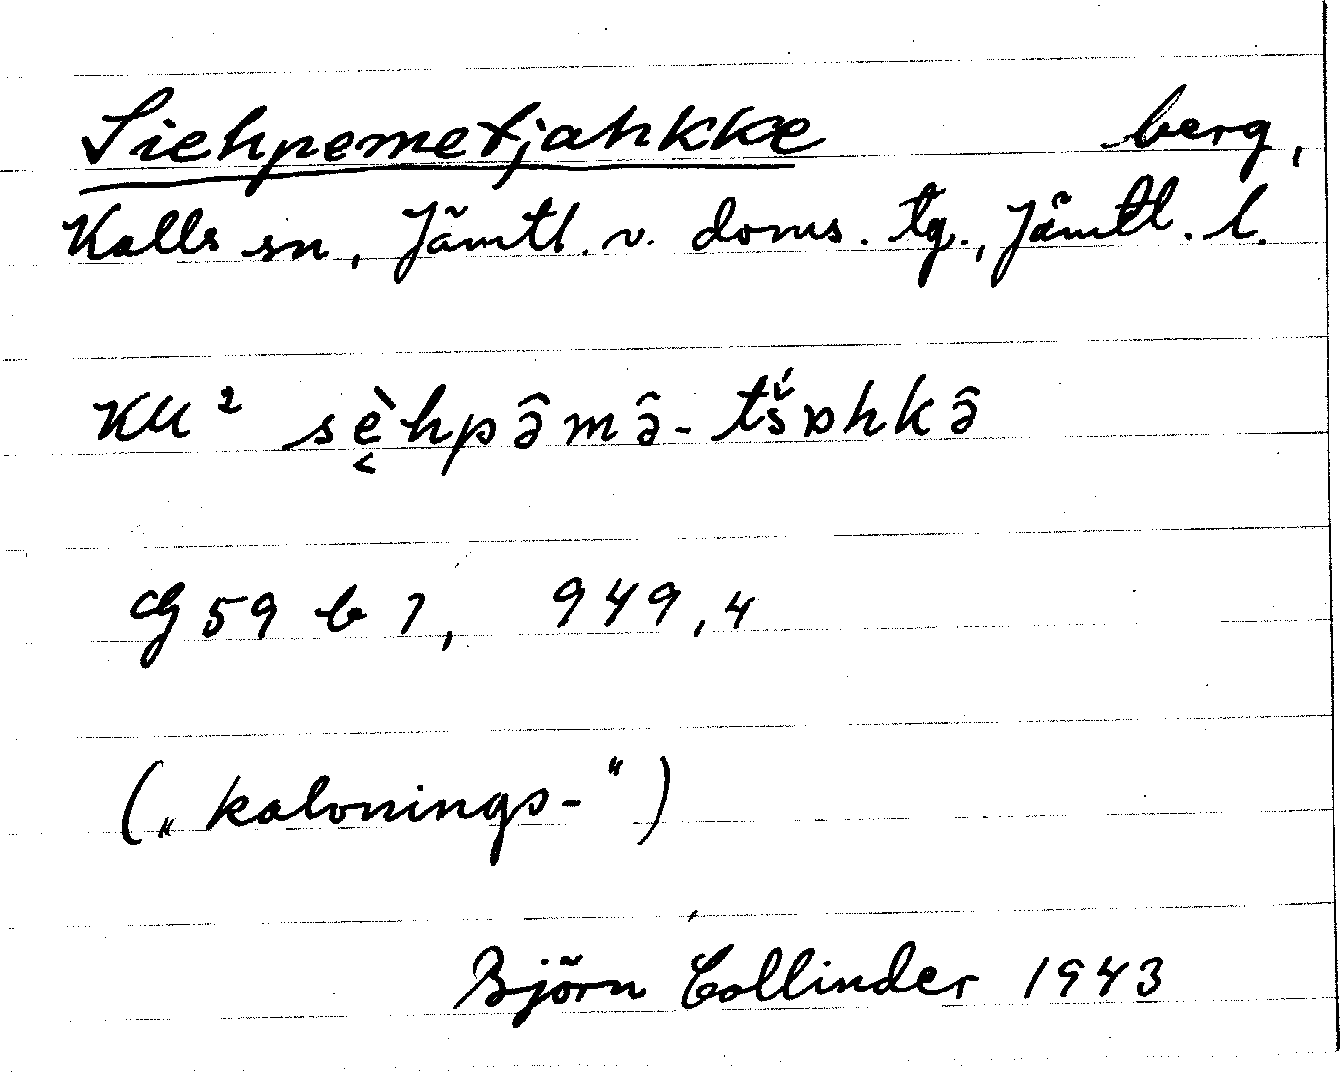 Siehpemetjahkke berg,
Kalls sn, Jämtl. v. doms. tg., Jämtl. l.
KM² sę̀hpə̂mə̂-tš́ɒhkə̂
G 59 b 1, 949,4
(„kalvnings-")
Björn Collinder 1943